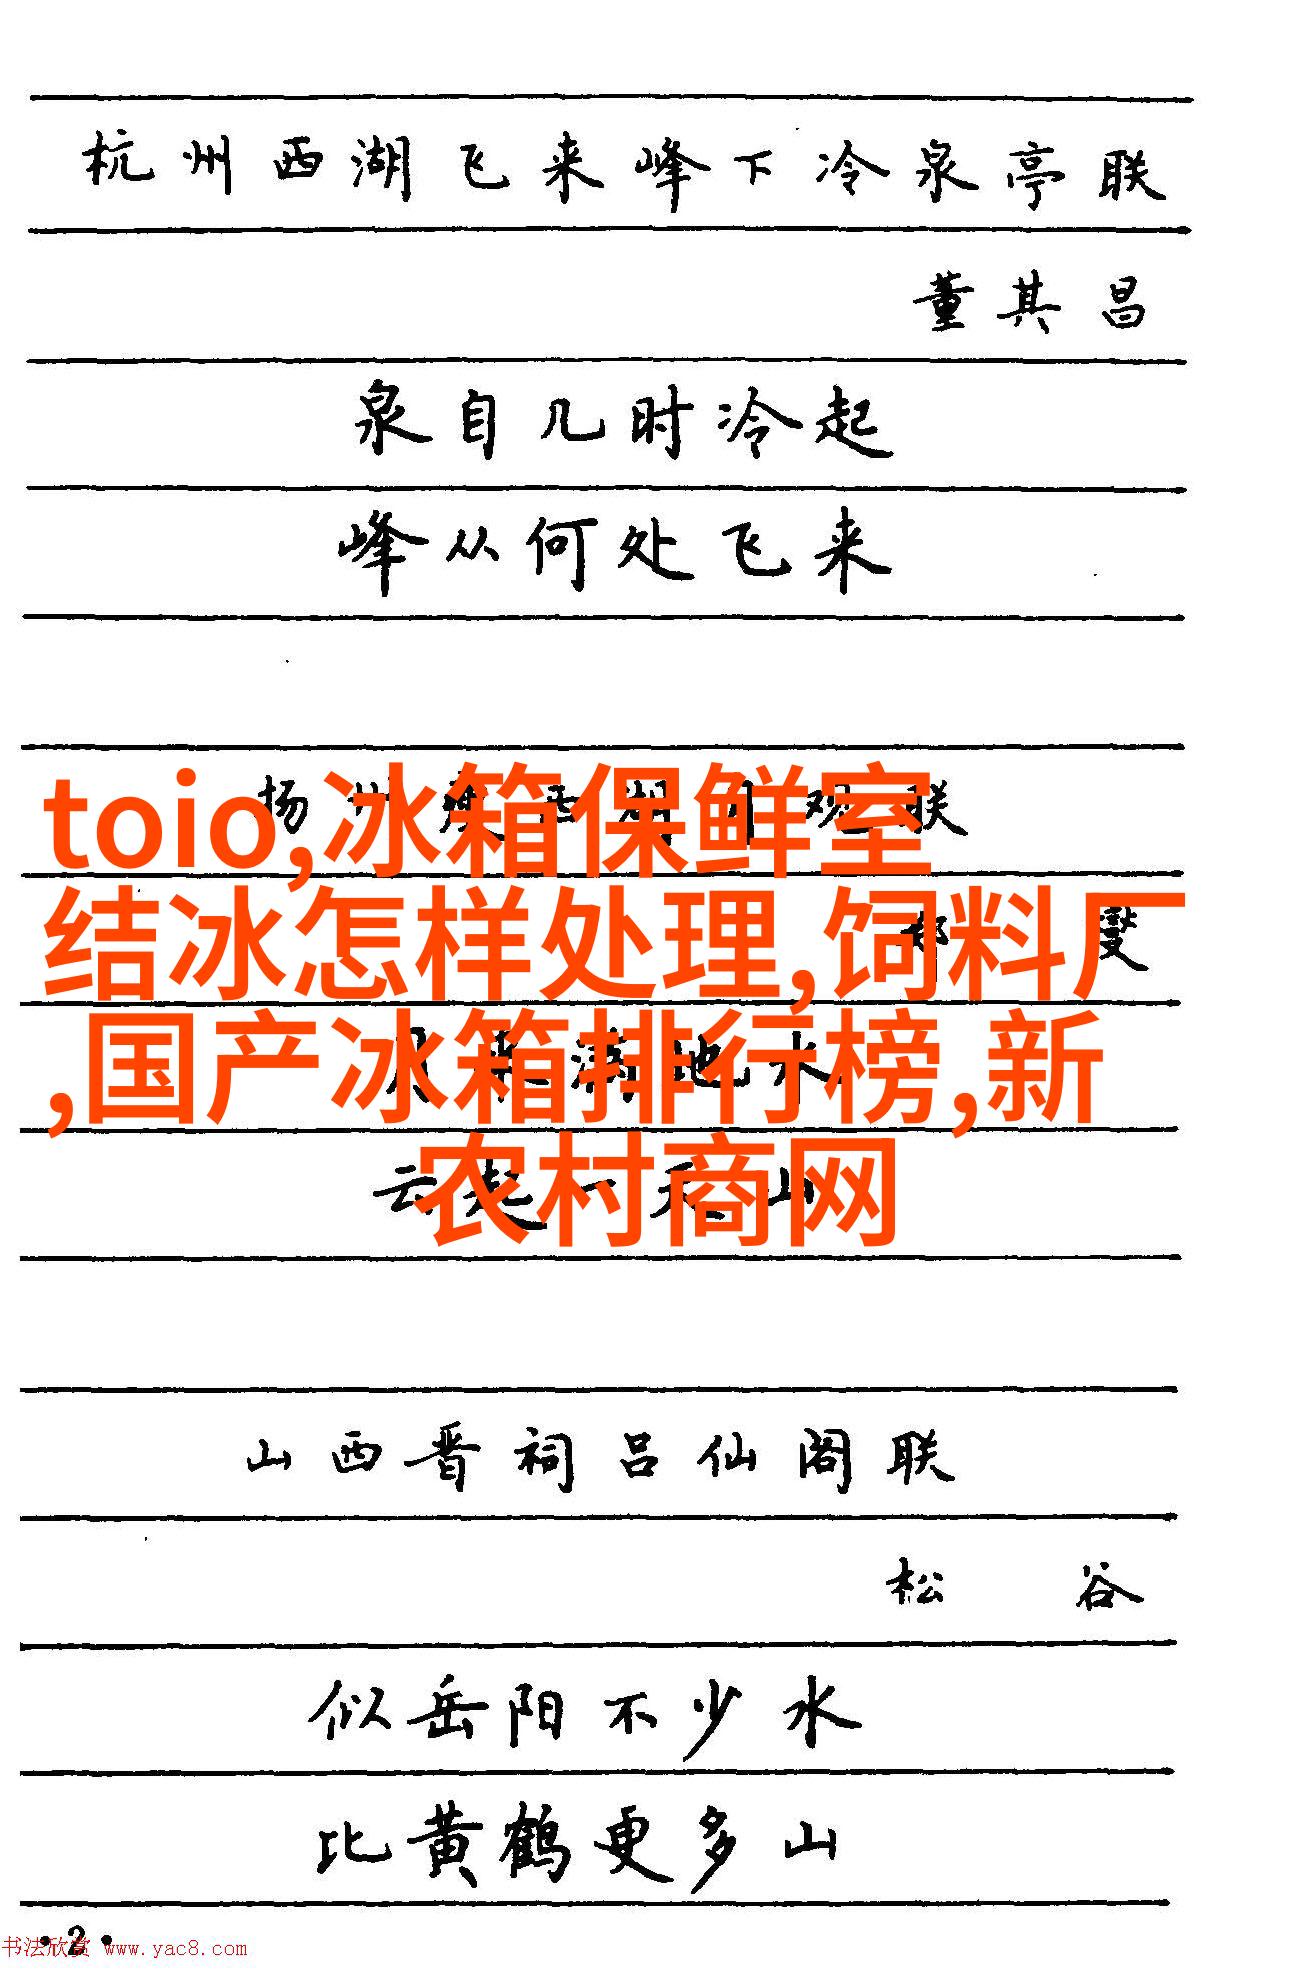 杭州西湖飞来峰下冷泉亭联
董其昌
泉自几时冷起
峰从何处飞来
扬州瘦西湖月观联
燮
toio,冰箱保鲜室
结冰怎样处理,饲料厂
月来满地水
,国产冰箱排行榜,新
云起一天山
农村商网
山西晋祠吕仙阁联
松谷
似岳阳不少水
比黄鹤更多山
·2·
书法欣赏 www.yac8.com